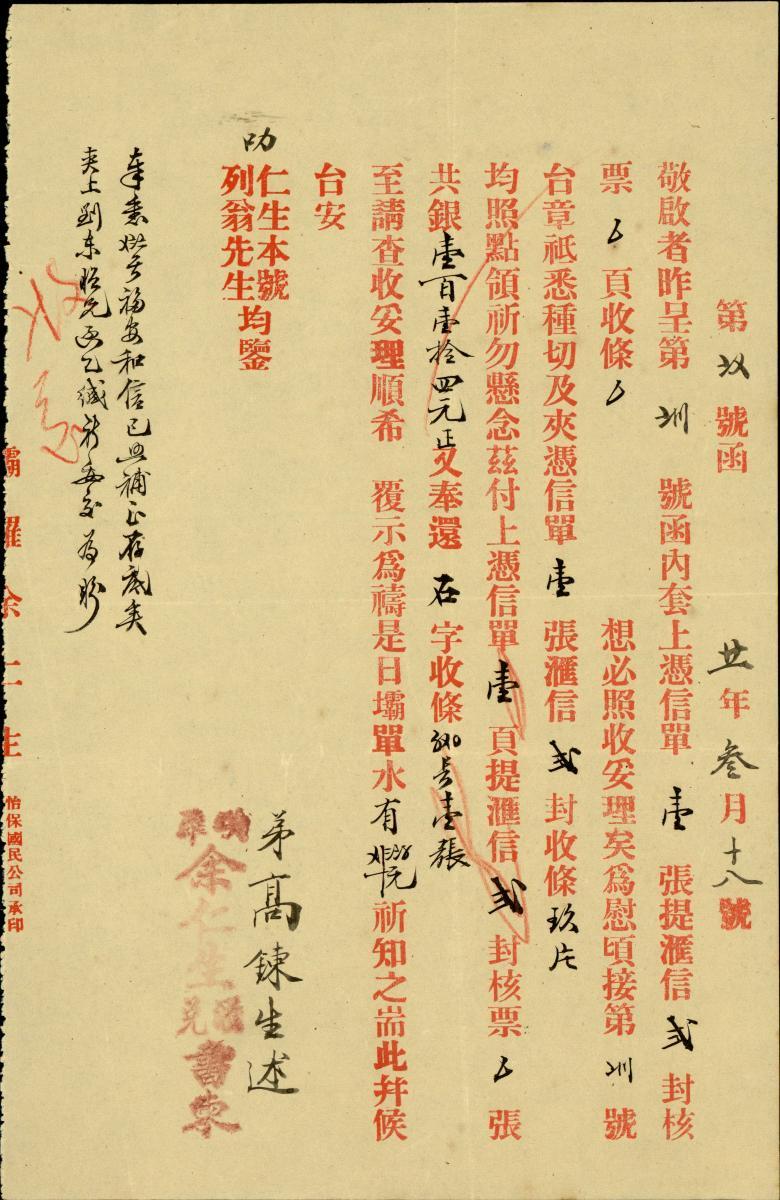 第 號函 廿年叁月十八號
敬啟者昨呈第 號函內套上憑信單壹張提滙信弍封核
票 頁收條 想必照收妥理矣爲慰頃接第 號
台章祇悉種切及夾憑信單壹張滙信弍封收條玖片
均照點領祈勿懸念茲付上憑信單壹頁提滙信弍封核票 張
共銀壹百壹拾四元正又奉還石字收條 壹張
至請查收妥理順希 覆示爲禱是日壩單水有 祈知之耑此并候
台安
叻
仁生本號
列翁先生
均鑒
弟高鍊生述
余仁生
滙兌
書柬
福安和信已照補正存底矣
夾上劉東 元函乙緘祈 交爲盼
壩羅余仁生
怡保國民公司承印